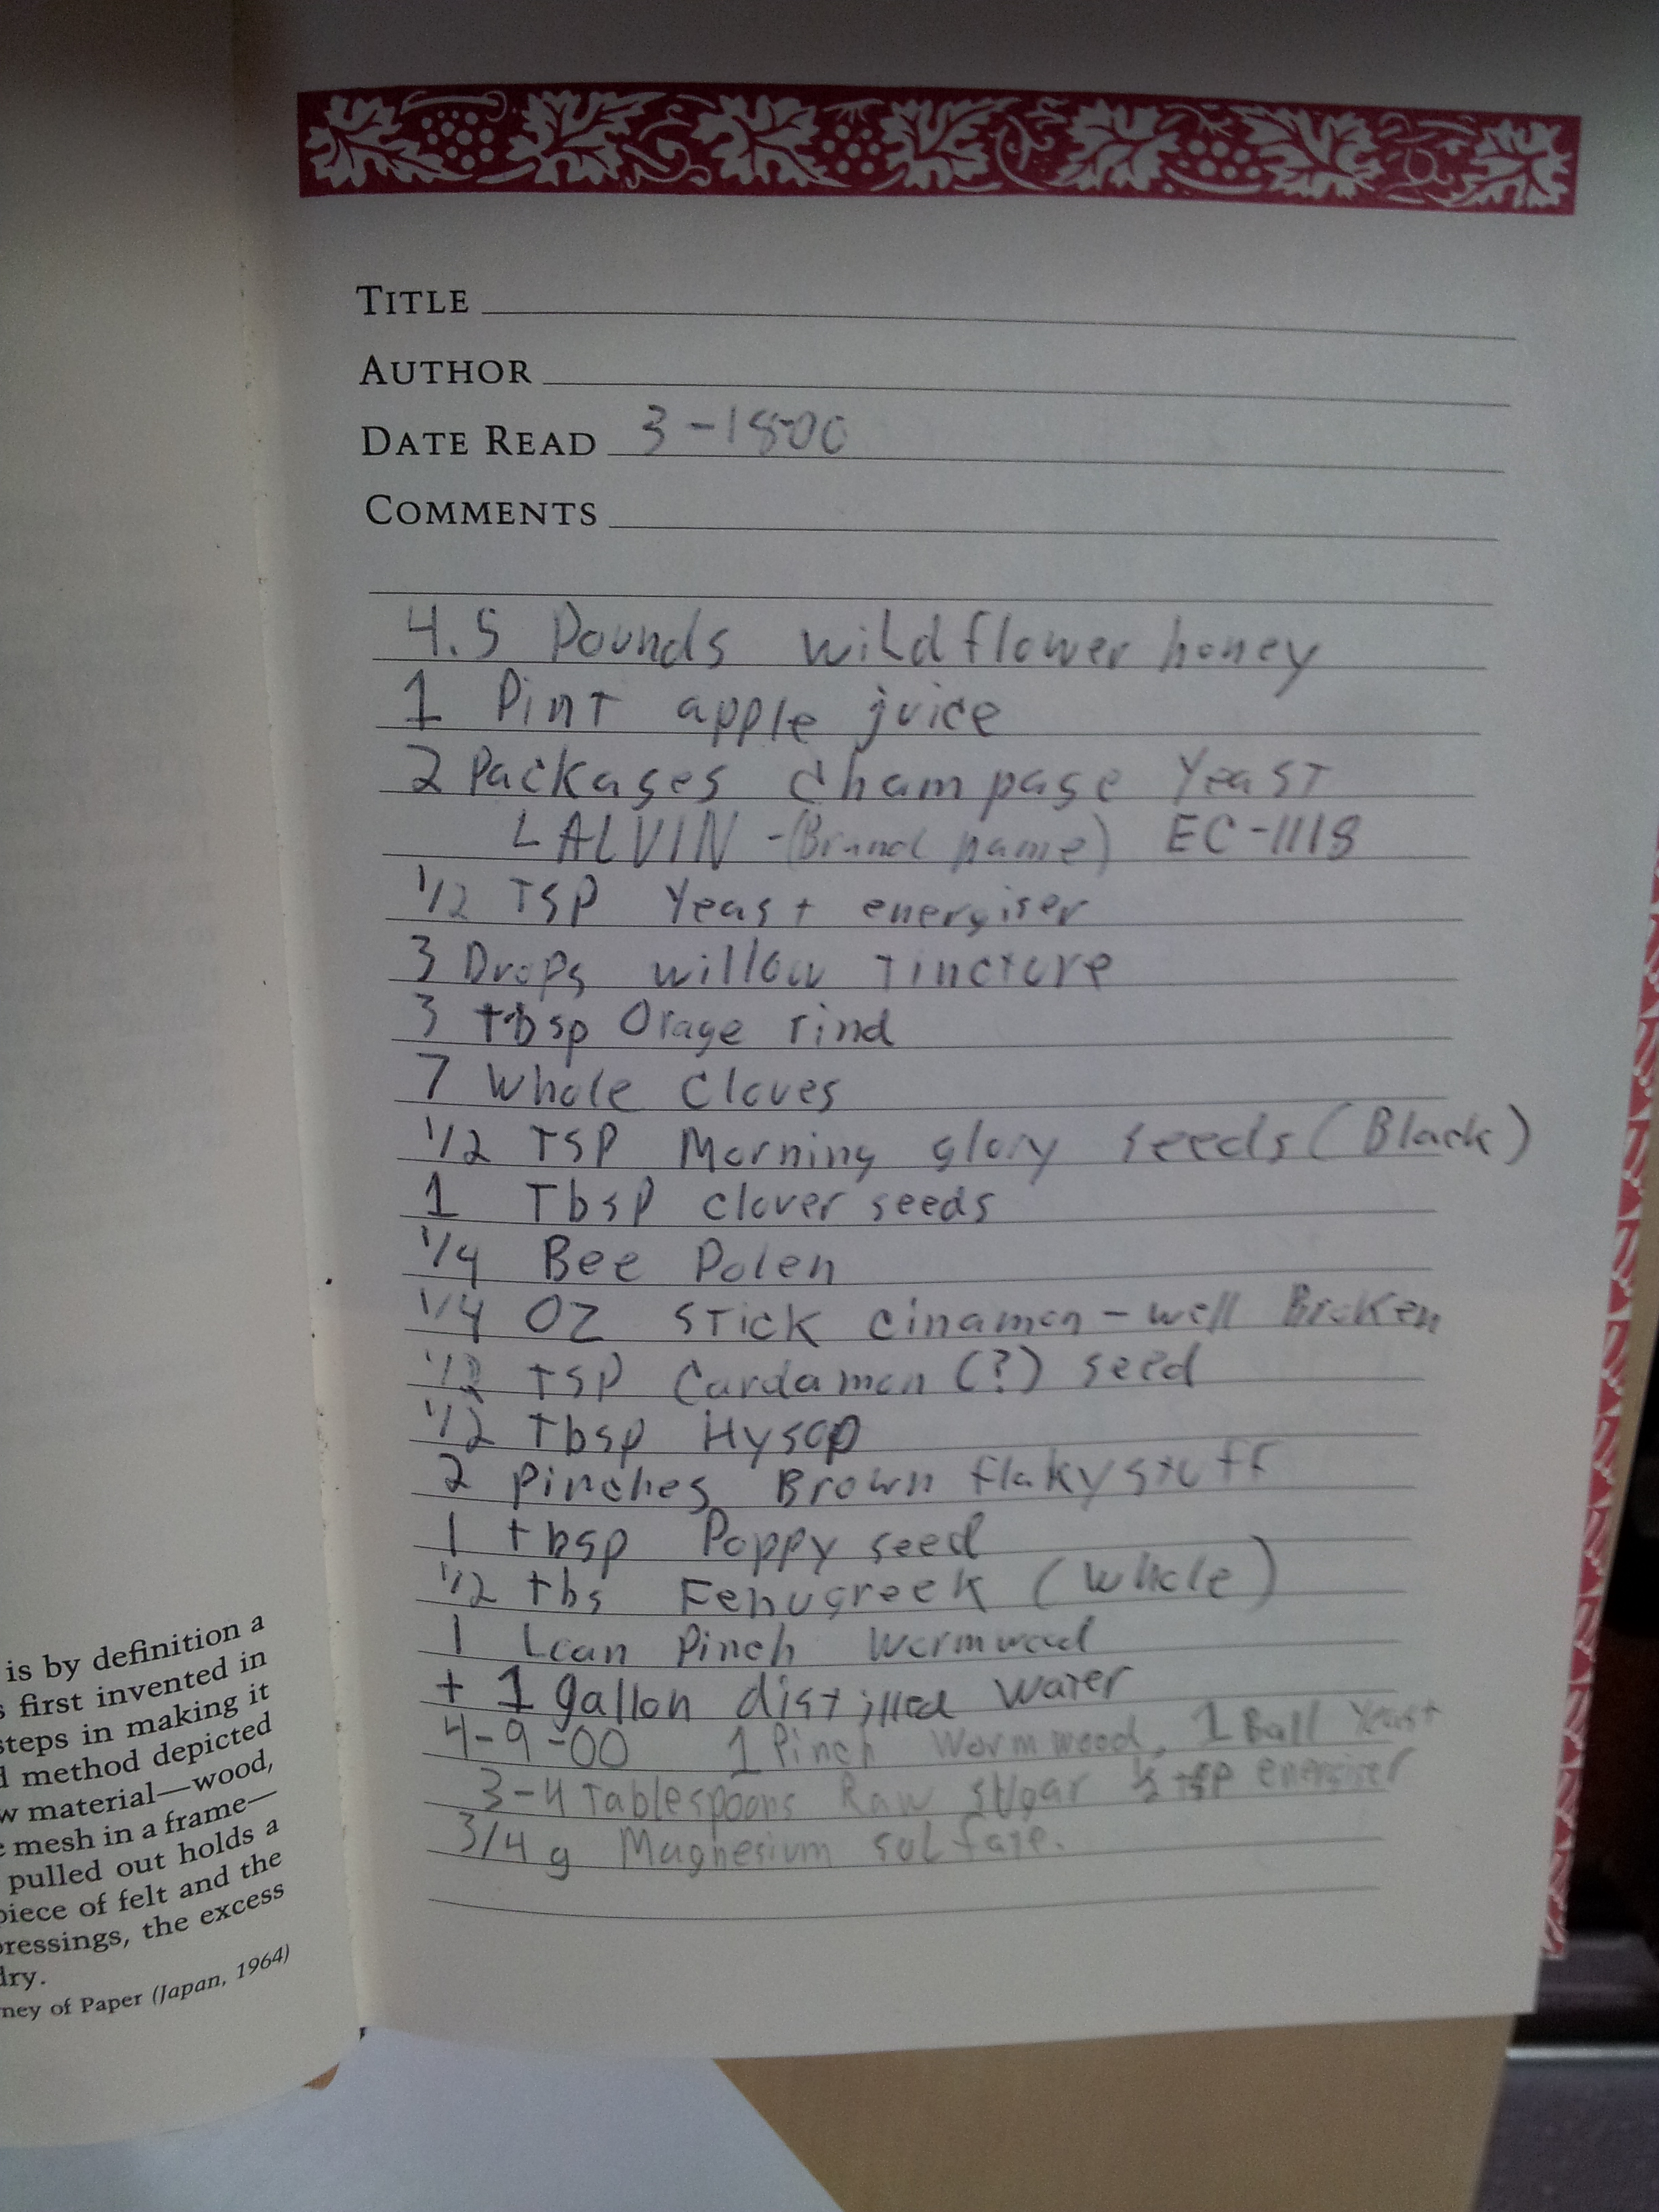 TITLE
AUTHOR
DATE READ 3-18-00
COMMENTS
4.5 Pounds wildflower honey
1 Pint apple juice
2 Packages champage Yeast
LALVIN -(Brand name) EC-1118
1/2 TSP Yeast energiser
3 Drops willow Tincture
3 tbsp Orage rind
7 Whole Cloves
1/2 TSP Morning glory seeds (Black)
1 Tbsp clover seeds
1/4 Bee Polen
1/4 OZ STICK cinamon - well Broken
1/2 TSP Cardamon (?) seed
1/2 Tbsp Hysop
2 Pinches Brown flaky stuff
1 tbsp Poppy seed
1/2 tbs Fenugreek (whole)
1 Lean Pinch Wormwood
+ 1 gallon distilled water
4-9-00 1 Pinch Wormwood, 1 Ball Yeast
3-4 Tablespoons Raw sugar 1/2 tsp energiser
3/4 g Magnesium sulfate.
is by definition a
first invented in
steps in making it
method depicted
w material—wood,
mesh in a frame—
pulled out holds a
piece of felt and the
pressings, the excess
dry.
rney of Paper (Japan, 1964)